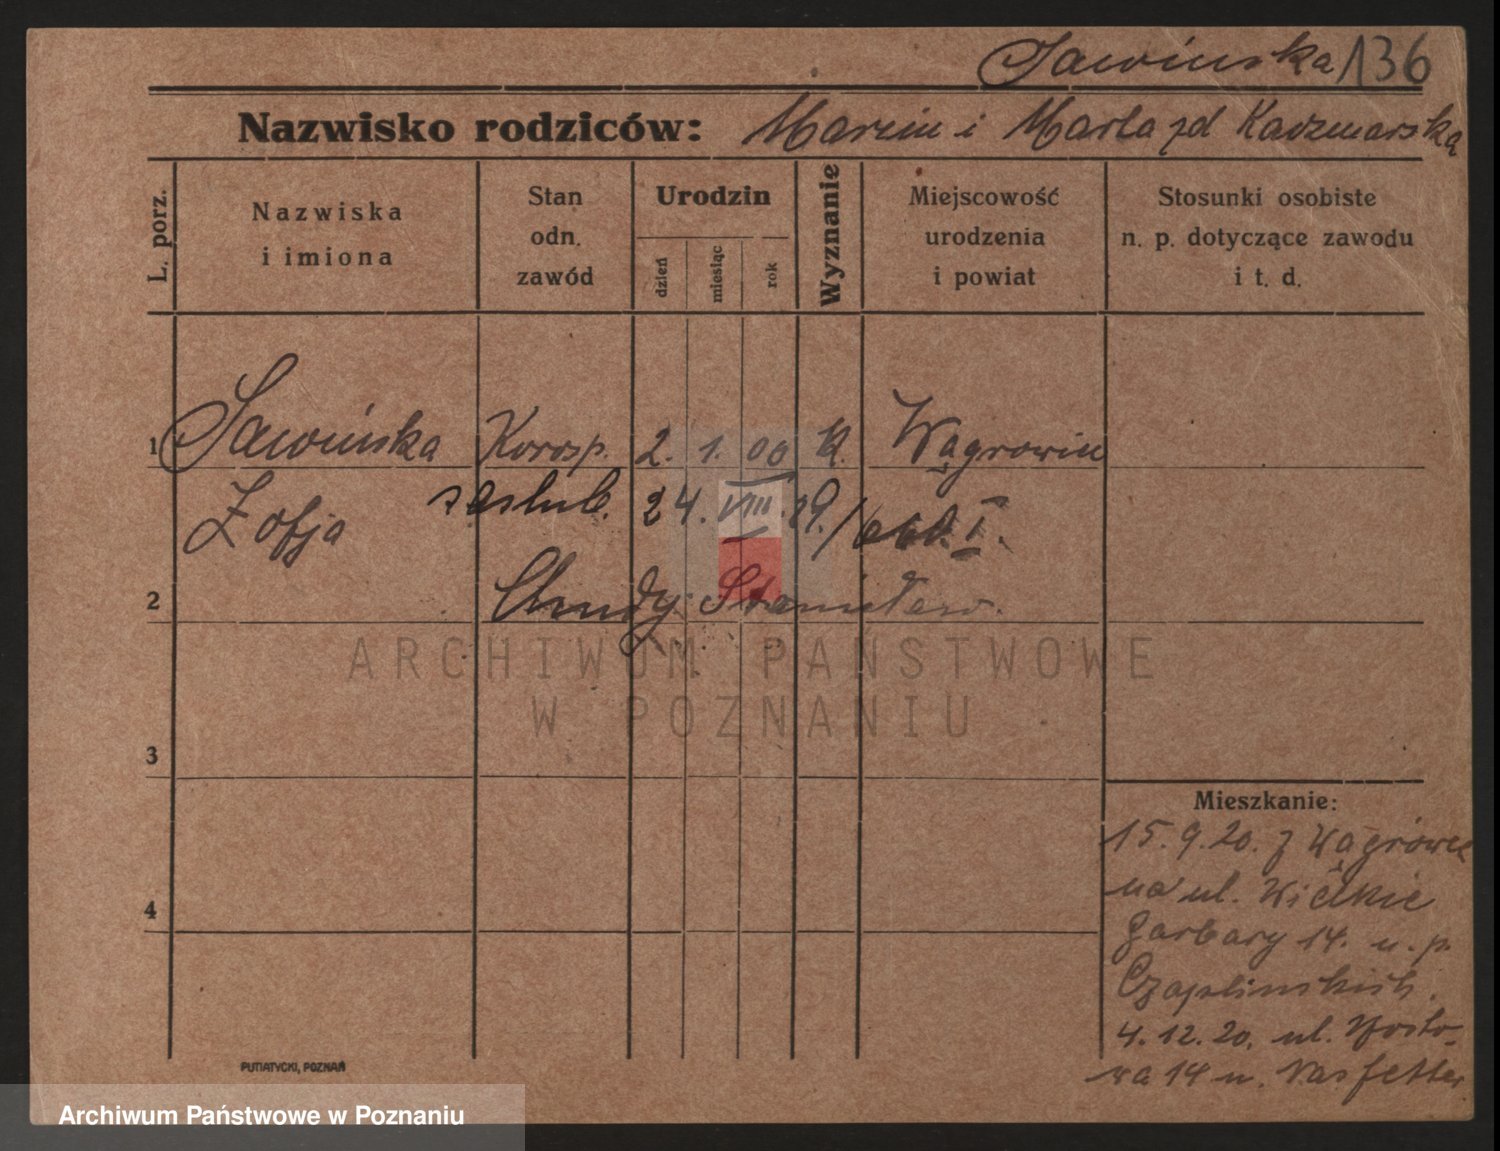 Sawińska 136
Nazwisko rodziców: Marcin i Marta zd Kaczmarską
L. porz.
Nazwiska
i imiona
Stan
odn.
zawód
Urodzin
dzień
miesiąc
rok
Wyznanie
Miejscowość
urodzenia
i powiat
Stosunki osobiste
n. p. dotyczące zawodu
i t. d.
1 Sawińska Koresp. 2. 1. 00 K. Wągrowiec
Zofja zaślub. 24. VIII. 29. I.
2 Chudy Stanisław.
ARCHIWUM PAŃSTWOWE
W POZNANIU
3
Mieszkanie:
15.9.20. z Wągrówca
na ul. Wielkie
4 Garbary 14. u. p.
Czaplinskich.
4.12.20. ul.
14 u.
PUTIATYCKI, POZNAŃ
Archiwum Państwowe w Poznaniu